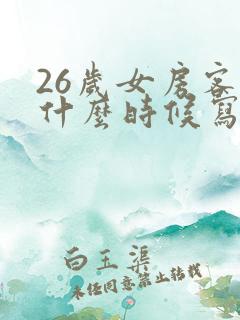 26歲女房客
什麼時候寫
白玉渠
未经同意禁止转载